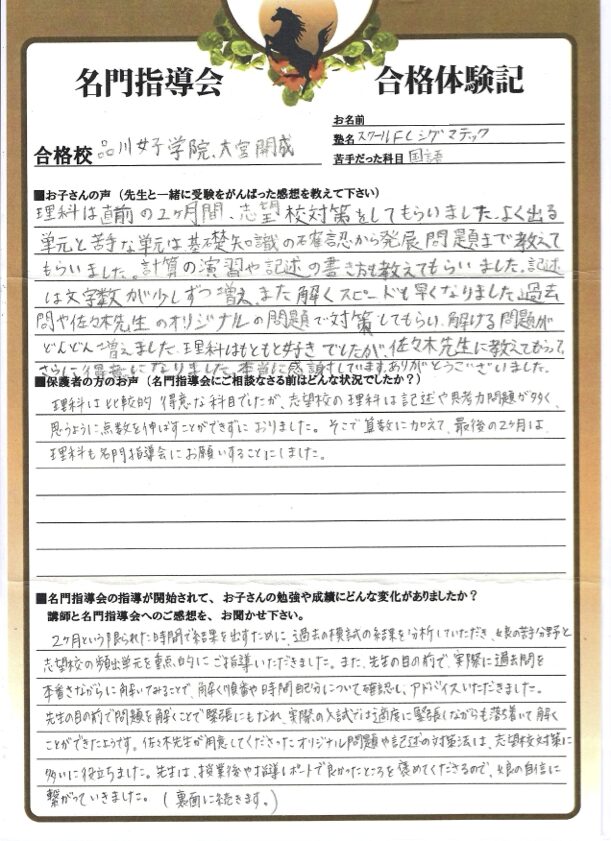 名門指導会 合格体験記
お名前
合格校 品川女子学院、大宮開成
塾名 スクールFC シグマテック
苦手だった科目 国語
■お子さんの声（先生と一緒に受験をがんばった感想を教えて下さい）
理科は直前の2ヶ月間、志望校対策をしてもらいました。よく出る
単元と苦手な単元は基礎知識の確認から発展問題まで教えて
もらいました。計算の演習や記述の書き方も教えてもらいました。記述
は文字数が少しずつ増え、また解くスピードも早くなりました。過去
問や佐々木先生のオリジナルの問題で対策してもらい、解ける問題が
どんどん増えました。理科はもともと好きでしたが、佐々木先生に教えてもらって、
さらに得意になりました。本当に感謝しています。ありがとうございました。
■保護者の方のお声（名門指導会にご相談なさる前はどんな状況でしたか？）
理科は比較的得意な科目でしたが、志望校の理科は記述や思考力問題が多く、
思うように点数を伸ばすことができずにおりました。そこで算数に加えて、最後の2ヶ月は、
理科も名門指導会にお願いすることにしました。
■名門指導会の指導が開始されて、お子さんの勉強や成績にどんな変化がありましたか？
講師と名門指導会へのご感想を、お聞かせ下さい。
2ヶ月という限られた時間で結果を出すために、過去の模試の結果を分析していただき、娘の苦手分野と
志望校の頻出単元を重点的にご指導いただきました。また、先生の目の前で、実際に過去問を
本番さながらに解いてみることで、解く順番や時間配分について確認し、アドバイスいただきました。
先生の目の前で問題を解くことで緊張にもなれ、実際の入試では適度に緊張しながらも落ち着いて解く
ことができたようです。佐々木先生が用意してくださったオリジナル問題や記述の対策法は、志望校対策に
多いに役立ちました。先生は、授業後や指導レポートで良かったところを褒めてくださるので、娘の自信に
繋がっていきました。（裏面に続きます。）